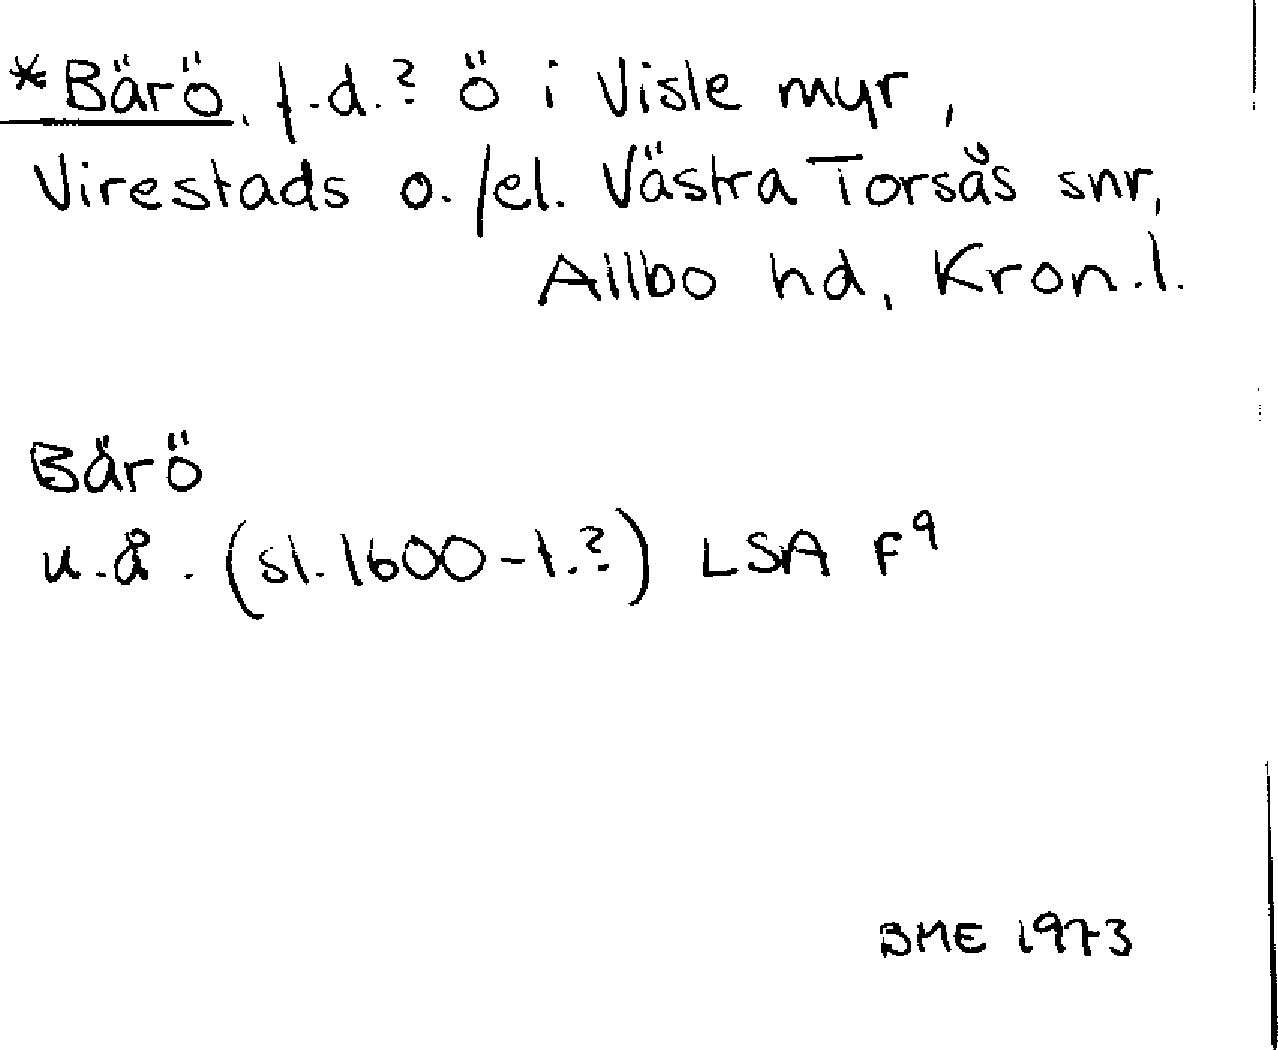 *Bärö, f.d.? ö i Visle myr,
Virestads o./el. Västra Torsås snr,
Allbo hd, Kron.l.
Bärö
u.å. (sl. 1600-t.?) LSA F⁹
BME 1973